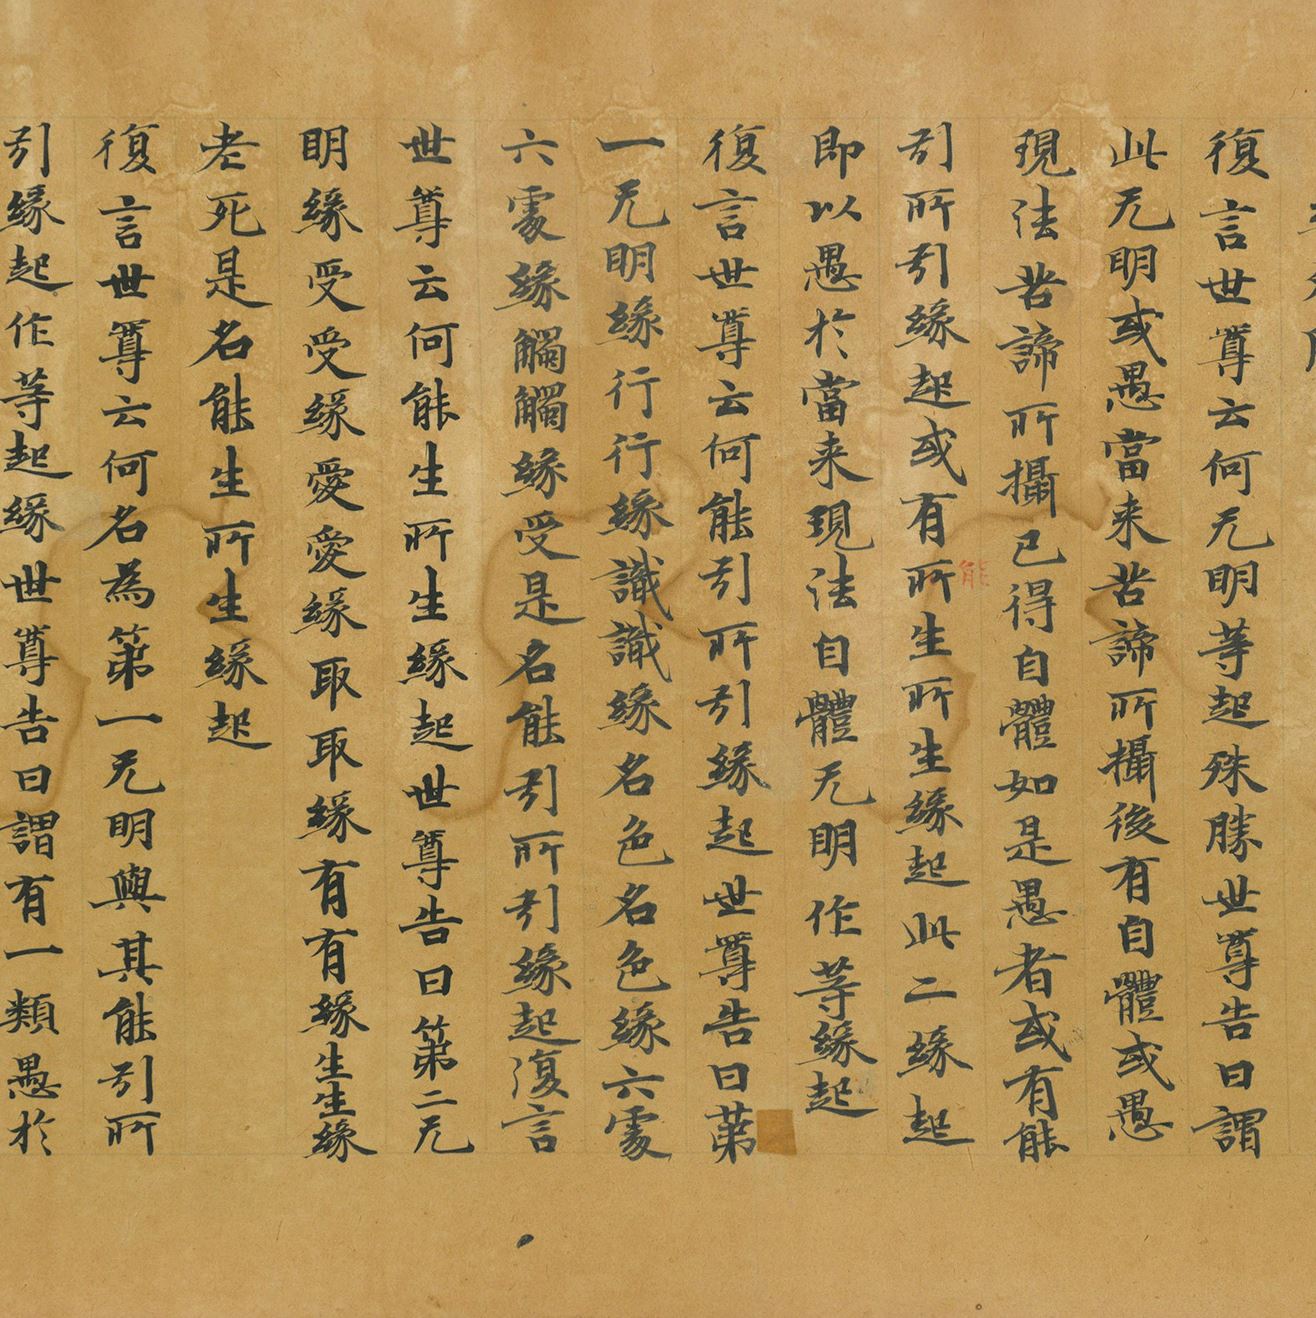 復言世尊云何无明等起殊勝世尊告曰謂
此无明或愚當来苦諦所攝後有自體或愚
現法苦諦所攝已得自體如是愚者或有能
引所引緣起或有所生所生緣起此二緣起
能
即以愚於當来現法自體无明作等緣起
復言世尊云何能引所引緣起世尊告曰第
一无明緣行行緣識識緣名色名色緣六處
六處緣觸觸緣受是名能引所引緣起復言
世尊云何能生所生緣起世尊告曰第二无
明緣受受緣愛愛緣取取緣有有緣生生緣
老死是名能生所生緣起
復言世尊云何名為第一无明與其能引所
引緣起作等起緣世尊告曰謂有一類愚於